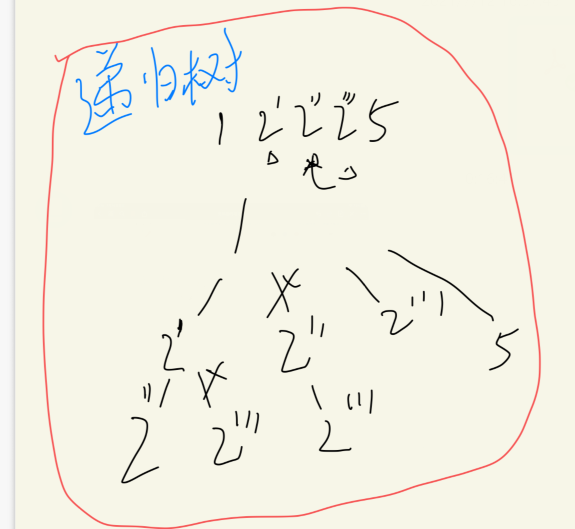 递归树
1 2' 2'' 2''' 5
2' 2'' 2''' 5
2'' 2''' 2'''